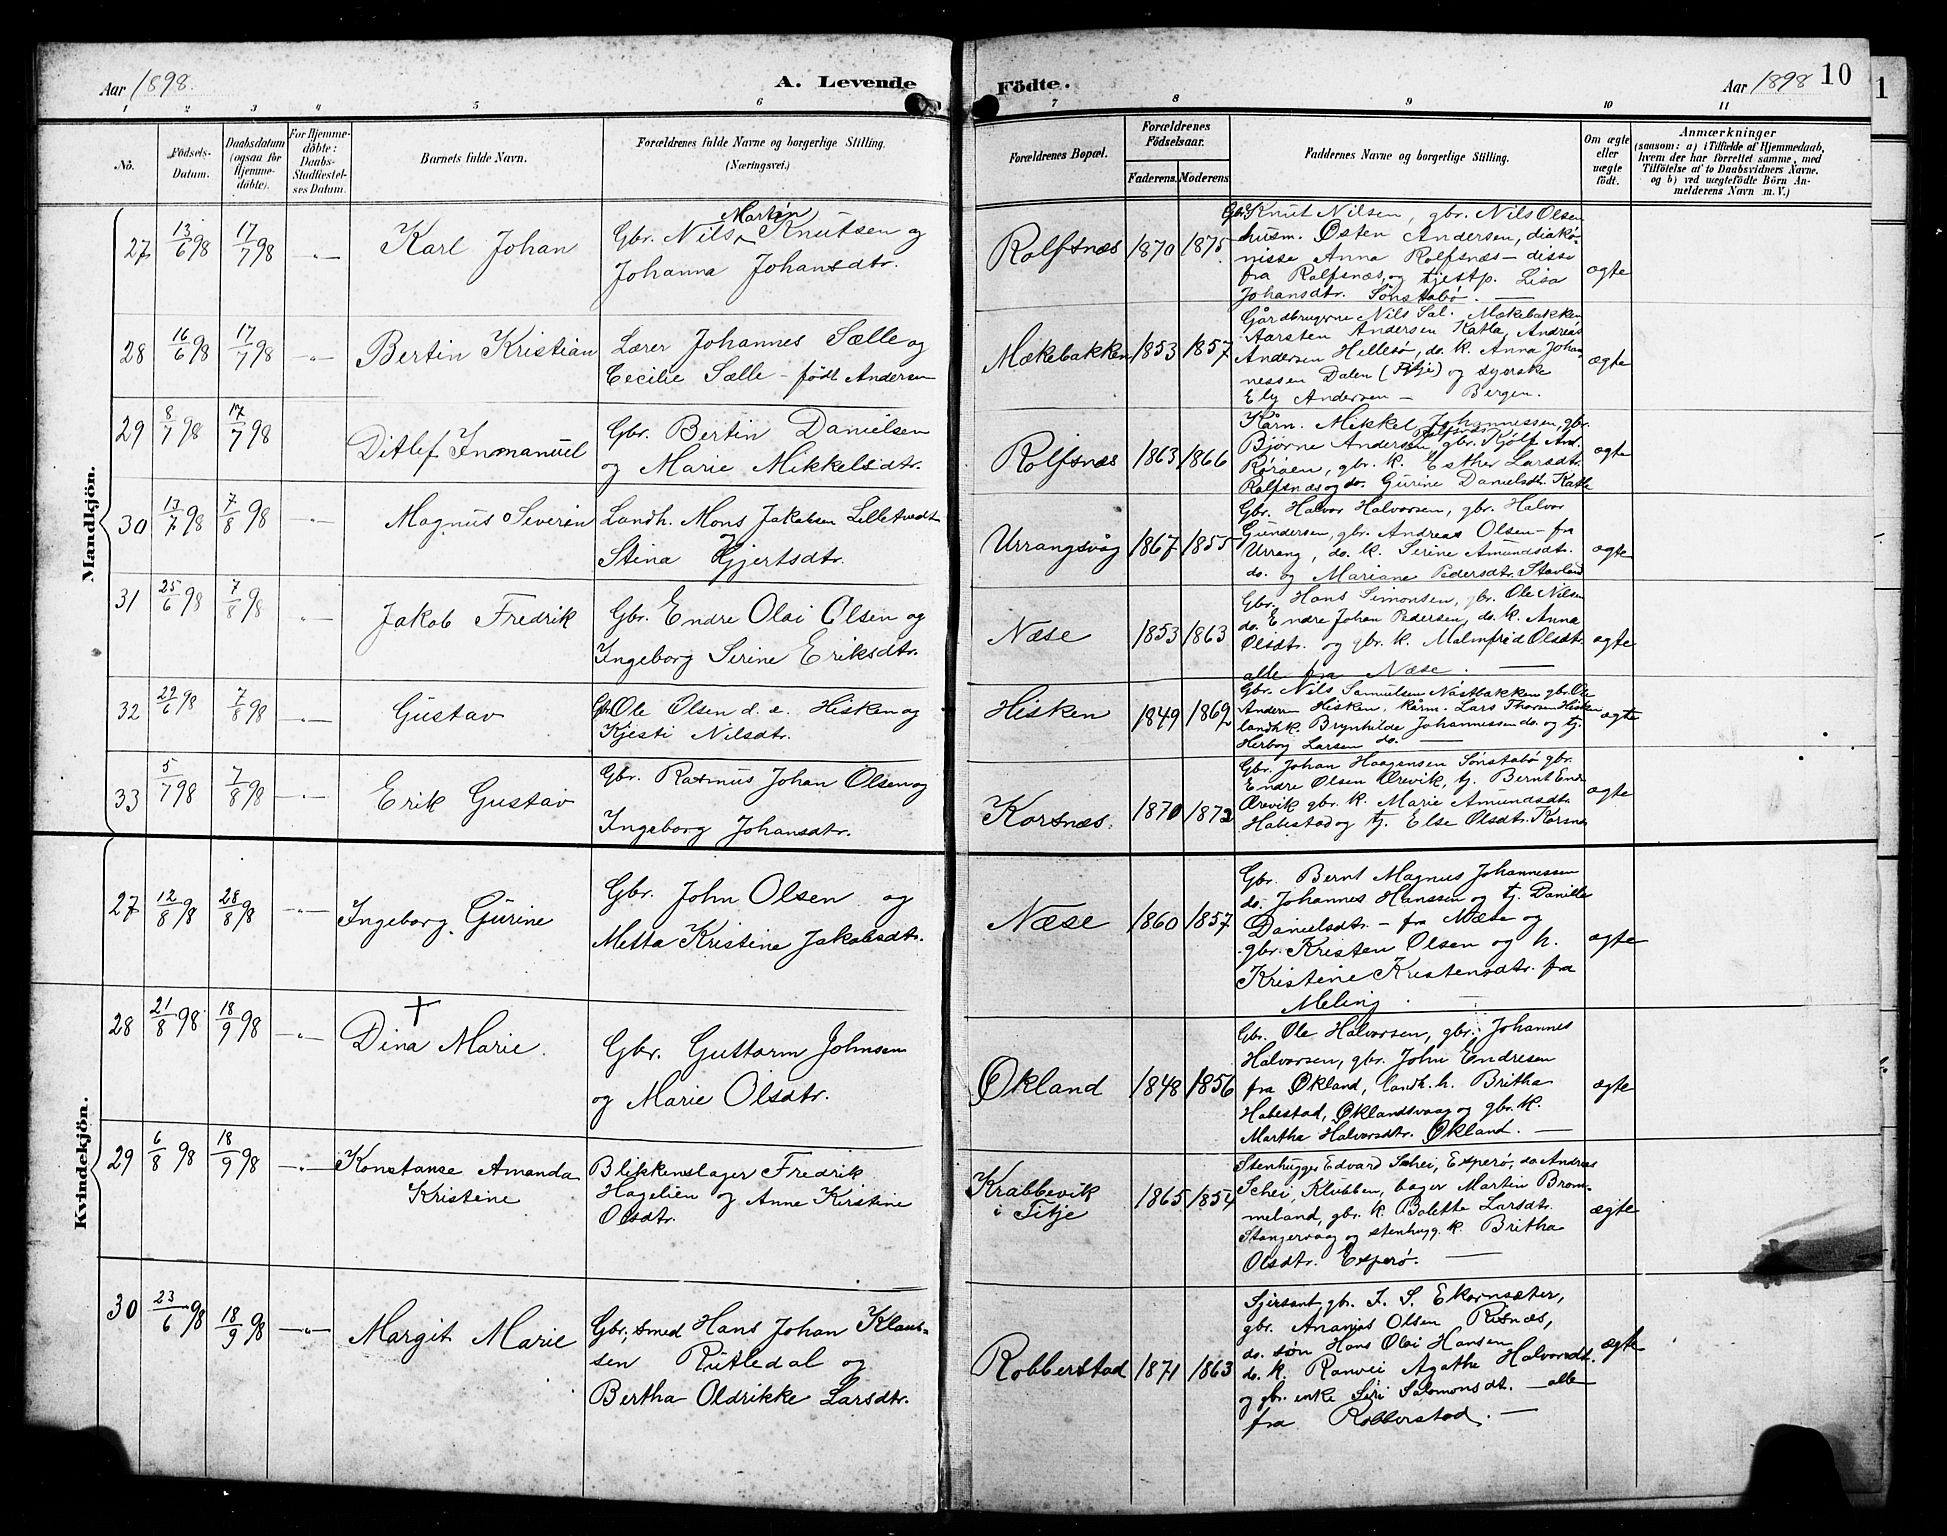 Aar 1898.
A. Levende
Födte.
Aar 1898
10
1
1 2 3 4 5 6 7 8 9 10 11
No.
Födsels-
Datum.
Daabsdatum
(ogsaa for
Hjemme-
döbte).
For Hjemme-
döbte:
Daabs-
Stadfæstel-
ses Datum.
Barnets fulde Navn.
Forældrenes fulde Navne og borgerlige Stilling.
(Næringsvei.)
Forældrenes Bopæl.
Forældrenes
Födselsaar.
Faderens. Moderens.
Faddernes Navne og borgerlige Stilling.
Om ægte
eller
uægte
födt.
Anmærkninger
(saasom: a) i Tilfælde af Hjemmedaab,
hvem der har forrettet samme, med
Tilföielse af to Daabsvidners Navne.
og b) ved uægtefödte Börn An-
melderens Navn m. V.)
Mandkjön.
27 13/6 98 17/7 98 -"-
Karl Johan
Gbr. Nils Martin Knutsen og
Johanna Johansdtr.
Rolfsnæs 1870 1875
Gbr Knut Nilsen, gbr. Nils Olsen
husm. Østen Andersen, diako-
nisse Anna Rolfsnæs - disse
fra Rolfsnæs, og tjeстр. Lisa
Johansdtr. Sønstabø. —
ægte
28 16/6 98 17/7 98 -"-
Bertin Kristian
Lærer Johannes Sælle og
Cecilie Sælle - født Andersen
Mækebakken 1853 1857
Gårdbrugerne Nils Sal. Mækebakken
Aarsten Andersen Katla, Andreas
Andersen Hillesø, do. k. Anna Johan
nessen Dalen (Fitje) og syerske
Ely Andersen - Bergen.
ægte
29 8/7 98 17/7 98
Ditlef Inmanuel
Gbr. Bertin Danielsen
og Marie Mikkelsdtr.
Rolfsnæs 1863 1866
Kårm. Mikkel Johannessen, gbr.
Bjørne Andersen gbr. Kjølf And.
Rørøen, gbr. k. Esther Larsdtr.
Rolfsnæs og do. Gurine Danielsdtr. Katle
ægte
30 13/7 98 7/8 98 -"-
Magnus Severin
Landh. Mons Jakobsen Lilletvedt
Stina Gjertsdtr.
Urrangsvåg 1867 1855
Gbr. Halvor Halvorsen, gbr. Halvor
Gundersen, gbr. Andreas Olsen - fra
Urrang, do. k. Serine Amundsdtr.
do. og Mariane Pedersdtr. Stavland
ægte
31 25/6 98 7/8 98 -"-
Jakob Fredrik
Gbr. Endre Olai Olsen og
Ingeborg Serine Eriksdtr.
Næse 1853 1863
Gbr. Hans Simonsen, gbr. Ole Nilsen
do. Endre Johan Pedersen, do. k. Anna
Olsdtr. og gbr. k. Malmfrid Olsdtr.
alle fra Næse. —
ægte
32 29/6 98 7/8 98 -"-
Gustav
Gbr. Ole Olsen d. e. Hisken og
Kjesti Nilsdtr.
Hisken 1849 1869
Gbr. Nils Samuelsen Nåstbakken gbr. Ole
Anders Hisken, kårm. Lars Thorsen Hisken
landhk. Brynhilde Johannessen do. og tj.
Herborg Larsen do. —
ægte
33 5/7 98 7/8 98 -"-
Erik Gustav
Gbr. Rasmus Johan Olsen og
Ingeborg Johansdtr.
Korsnæs. 1870 1872
Gbr. Johan Haagensen Sønstabø gbr.
Endre Olsen Ørevik, tj. Bernt Endr.
Ørevik gbr. k. Marie Amundsdtr.
Habestad og tj. Else Olsdtr. Korsnæs
ægte
Kvindekjön.
27 12/8 98 28/8 98 -"-
Ingeborg Gurine
Gbr. John Olsen og
Metta Kristine Jakobsdtr.
Næse 1860 1857
Gbr. Bernt Magnus Johannessen
do. Johannes Hanssen og tj. Danille
Danielsdtr. - fra Næse og
gbr. Kristen Olsen og h.
Kristine Kristensdtr. fra
Meling. —
ægte
28 21/8 98 18/9 98 -"-
+
Dina Marie.
Gbr. Guttorm Johnsen
og Marie Olsdtr.
Økland 1848 1856
Gbr. Ole Halvorsen, gbr. Johannes
Halvorsen, gbr. John Endresen
fra Økland, landh. h. Britha
Habestad, Øklandsvaag og gbr. k.
Martha Halvorsdtr. Økland. —
ægte
29 6/8 98 18/9 98 -"-
Konstanse Amanda
Kristine
Blikkenslager Fredrik
Hagelien og Anne Kirstine
Olsdtr.
Krabbevik
i Fitje 1865 1854
Stenhugger Edvard Schei, Esperø, do Andreas
Schei, Klubben, bager Martin Brom-
meland, gbr. k. Bolette Larsdtr.
Stangervaag og stenhugg. k. Britha
Olsdtr. Esperø. —
ægte
30 23/6 98 18/9 98 -"-
Margit Marie
Gbr., smed Hans Johan Klaus-
sen Rutledal og
Bertha Oldrikke Larsdtr.
Robberstad 1871 1863
Sjersant gbr. I. S. Ekornsæter,
gbr. Ananias Olsen Risnæs,
do. søn Hans Olai Hansen
do. k. Ranvei Agathe Halvorsdt.
og gbr. enke Siri Salomonsdt. - alle
fra Robberstad. —
ægte